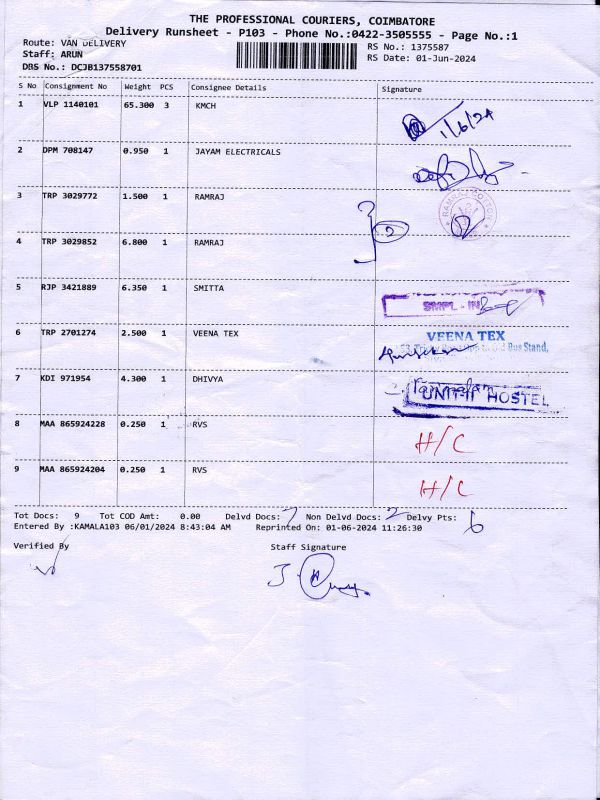 THE PROFESSIONAL COURIERS, COIMBATORE
Delivery Runsheet - P103 - Phone No.:0422-3505555 - Page No.:1
Route: VAN DELIVERY RS No.: 1375587
Staff: ARUN RS Date: 01-Jun-2024
DBS No.: DCJB137558701
S No Consignment No Weight PCS Consignee Details Signature
1 VLP 1140101 65.300 3 KMCH 1/6/24
2 DPM 708147 0.950 1 JAYAM ELECTRICALS
3 TRP 3029772 1.500 1 RAMRAJ
2
4 TRP 3029852 6.800 1 RAMRAJ
5 RJP 3421889 6.350 1 SMITTA SMPL - IN
6 TRP 2701274 2.500 1 VEENA TEX VEENA TEX
Bus Stand,
7 KDI 971954 4.300 1 DHIVYA UNIT-II HOSTEL
8 MAA 865924228 0.250 1 RVS H/C
9 MAA 865924204 0.250 1 RVS H/C
Tot Docs: 9 Tot COD Amt: 0.00 Delvd Docs: 7 Non Delvd Docs: 2 Delvy Pts: 6
Entered By :KAMALA103 06/01/2024 8:43:04 AM Reprinted On: 01-06-2024 11:26:30
Verified By Staff Signature